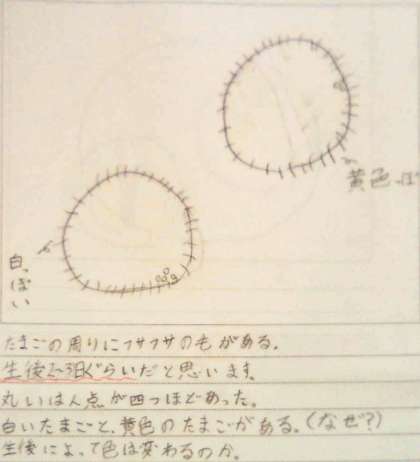 黄色っぽ
白っぽい
たまごの周りにフサフサの毛がある。
生後2〜3日ぐらいだと思います。
丸いはん点が四つほどあった。
白いたまごと、黄色のたまごがある。(なぜ?)
生後によって色は変わるのか。